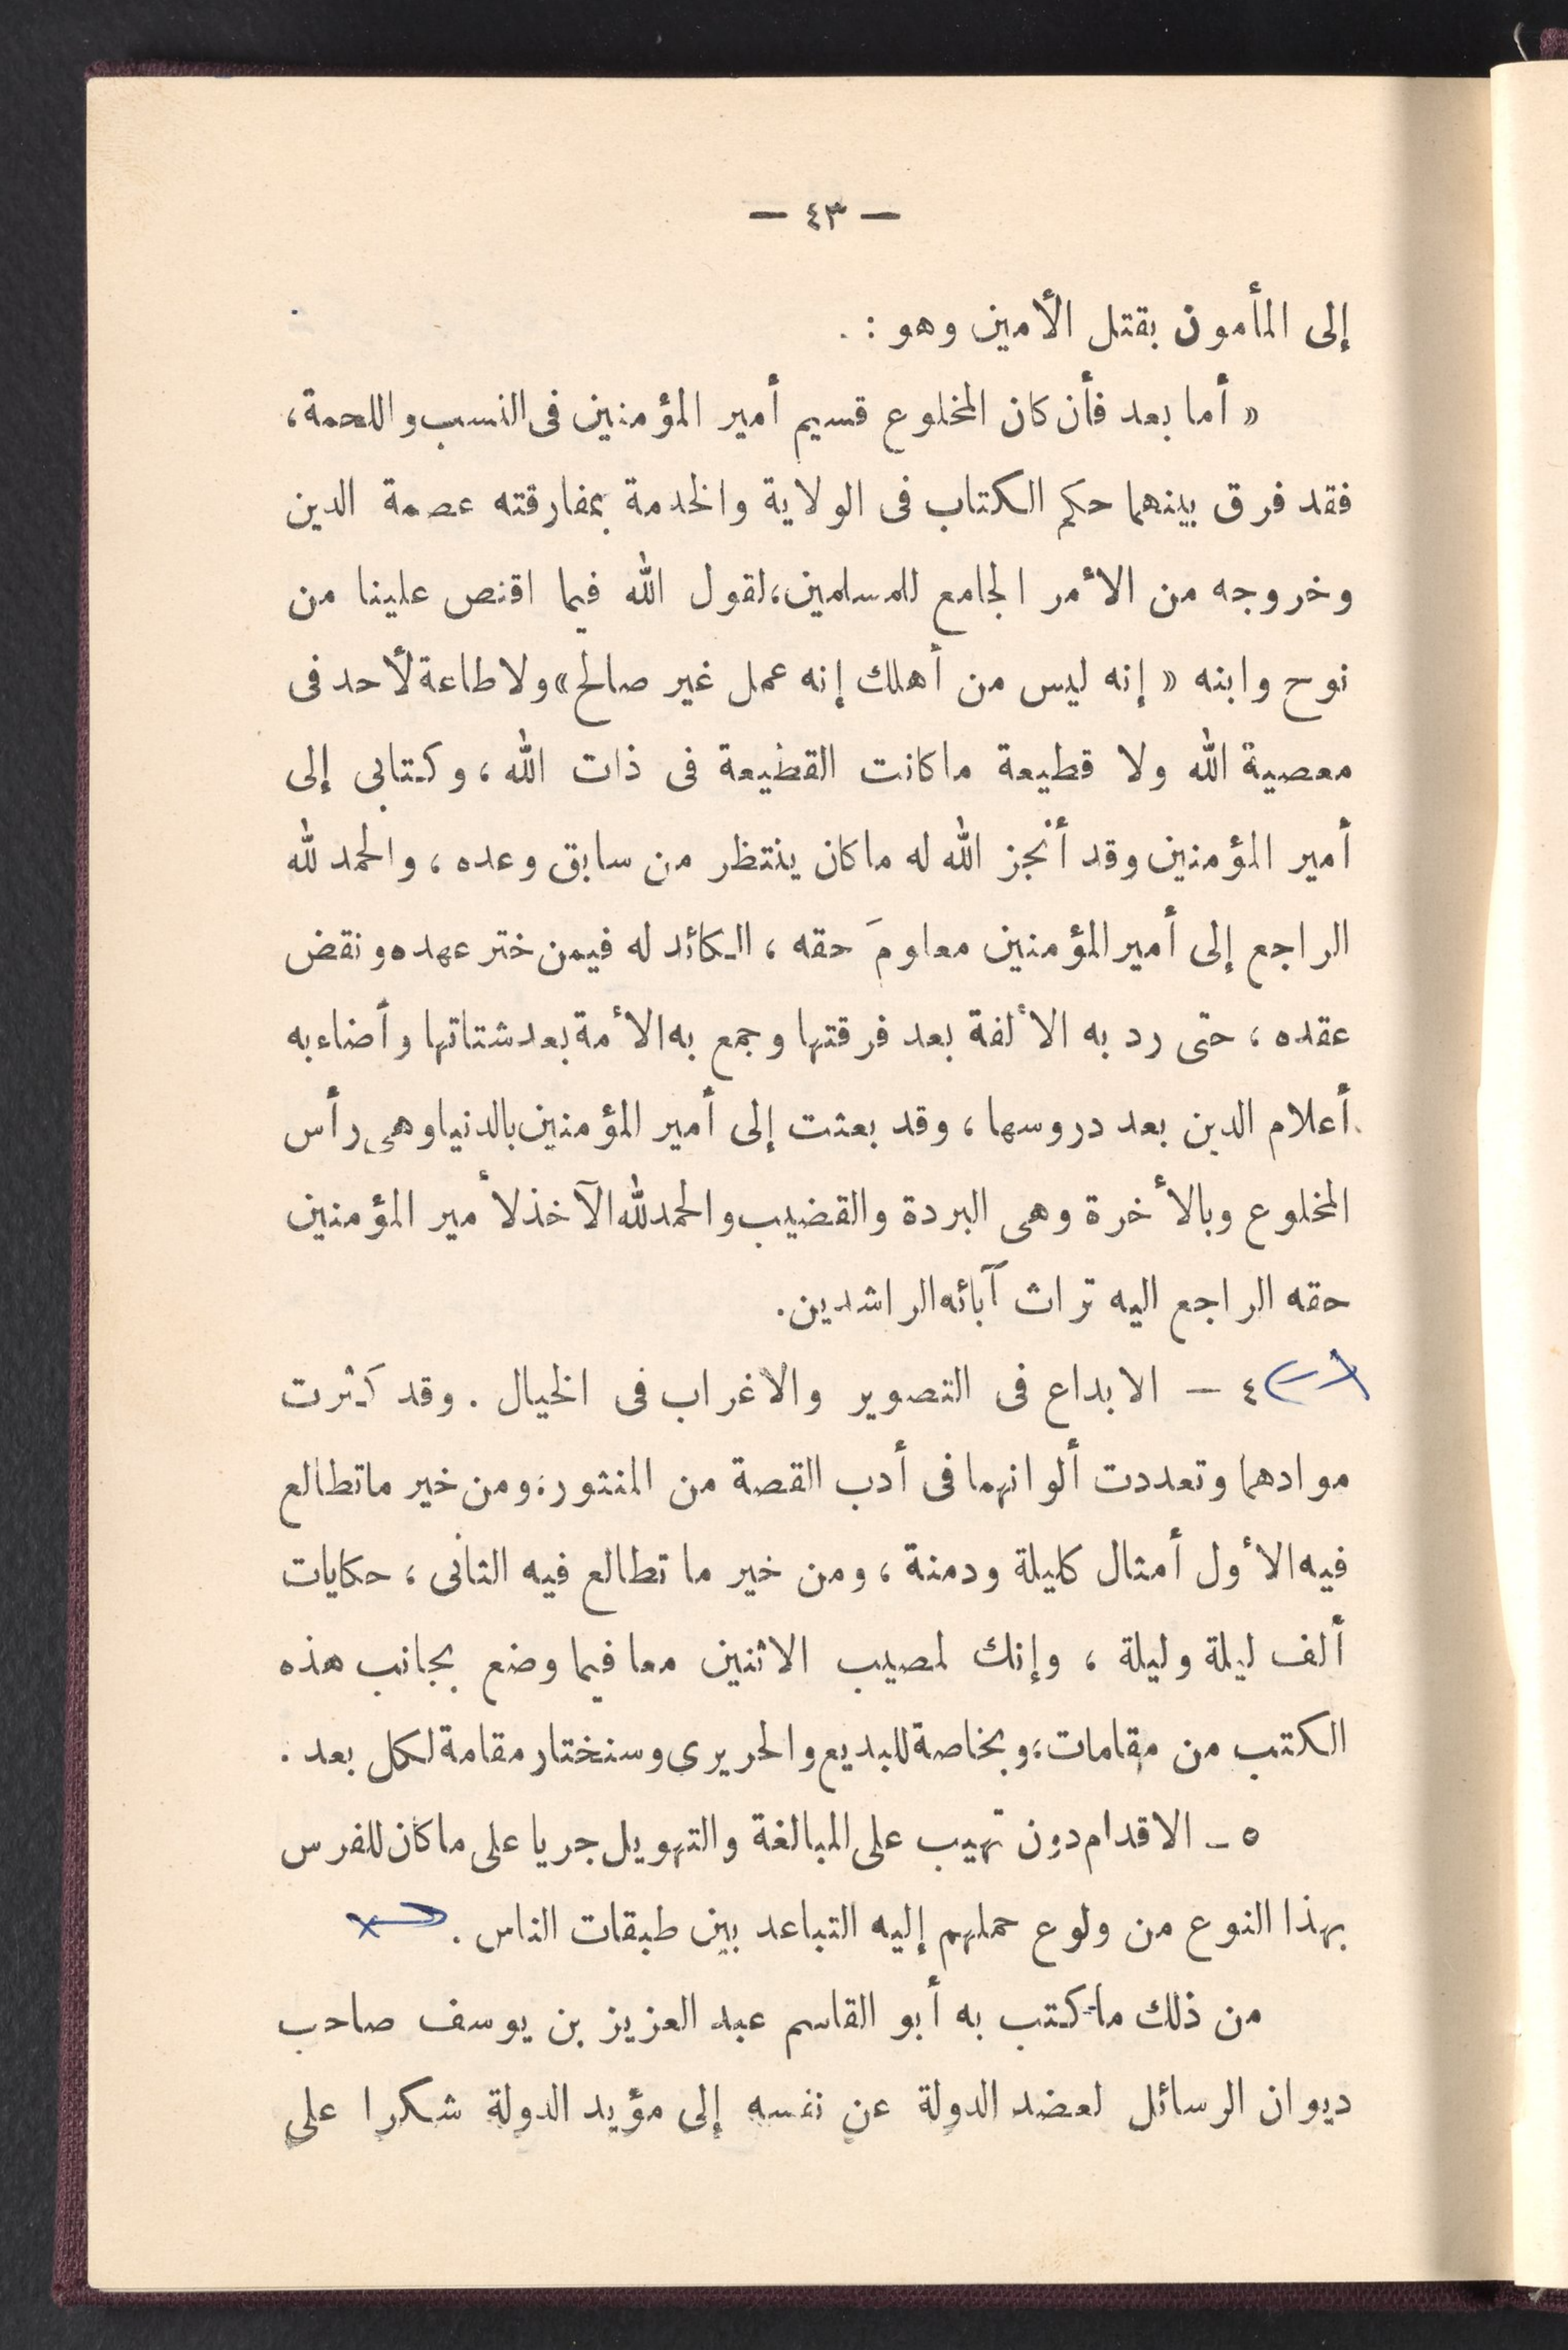 — ٤٣ —
إلى المأمون بقتل الأمين وهو : .
« أما بعد فأن كان المخلوع قسيم أمير المؤمنين فى النسب واللحمة،
فقد فرق بينهما حكم الكتاب فى الولاية والخدمة بمفارقته عصمة الدين
وخروجه من الأمر الجامع للمسلمين، لقول الله فيما اقتص علينا من
نوح وابنه « إنه ليس من أهلك إنه عمل غير صالح» ولا طاعة لأحد فى
معصية الله ولا قطيعة ما كانت القطيعة فى ذات الله ، وكتابى إلى
أمير المؤمنين وقد أنجز الله له ما كان ينتظر من سابق وعده ، والحمد لله
الراجع إلى أمير المؤمنين معلومَ حقه ، الكائد له فيمن ختر عهده ونقض
عقده ، حتى رد به الألفة بعد فرقتها وجمع به الأمة بعد شتاتها وأضاء به
أعلام الدين بعد دروسها ، وقد بعثت إلى أمير المؤمنين بالدنيا وهى رأس
المخلوع وبالأخرة وهى البردة والقضيب والحمد لله الآخذ لأمير المؤمنين
حقه الراجع اليه تراث آبائه الراشدين.
٤ – الابداع فى التصوير والاغراب فى الخيال . وقد كثرت
موادهما وتعددت ألوانهما فى أدب القصة من المنثور، ومن خير ما تطالع
فيه الأول أمثال كليلة ودمنة ، ومن خير ما تطالع فيه الثانى ، حكايات
ألف ليلة وليلة ، وإنك لمصيب الاثنين معا فيما وضع بجانب هذه
الكتب من مقامات، وبخاصة للبديع والحريرى وسنختار مقامة لكل بعد .
٥ – الاقدام دون تهيب على المبالغة والتهويل جريا على ما كان للفرس
بهذا النوع من ولوع حملهم إليه التباعد بين طبقات الناس .
من ذلك ما كتب به أبو القاسم عبد العزيز بن يوسف صاحب
ديوان الرسائل لعضد الدولة عن نفسه إلى مؤيد الدولة شكرا على